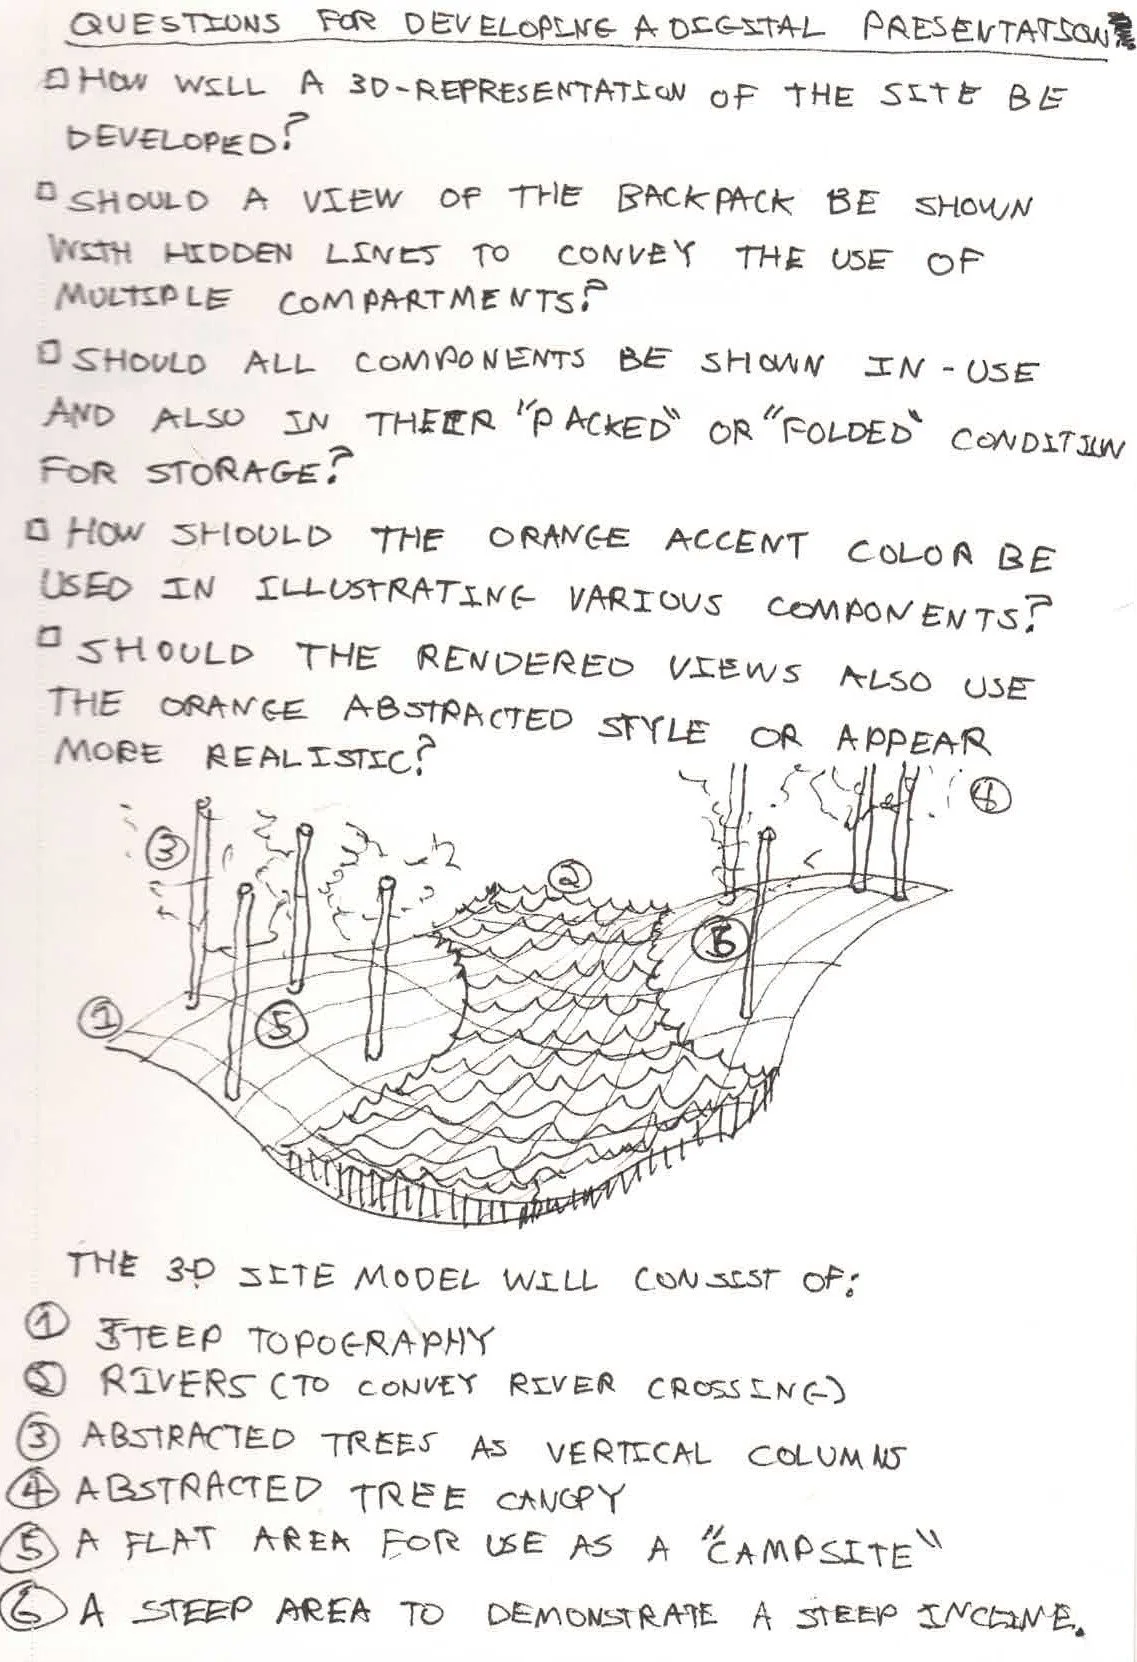 QUESTIONS FOR DEVELOPING A DIGITAL PRESENTATION
□ HOW WILL A 3D-REPRESENTATION OF THE SITE BE
DEVELOPED?
□ SHOULD A VIEW OF THE BACKPACK BE SHOWN
WITH HIDDEN LINES TO CONVEY THE USE OF
MULTIPLE COMPARTMENTS?
□ SHOULD ALL COMPONENTS BE SHOWN IN-USE
AND ALSO IN THEIR "PACKED" OR "FOLDED" CONDITION
FOR STORAGE?
□ HOW SHOULD THE ORANGE ACCENT COLOR BE
USED IN ILLUSTRATING VARIOUS COMPONENTS?
□ SHOULD THE RENDERED VIEWS ALSO USE
THE ORANGE ABSTRACTED STYLE OR APPEAR
MORE REALISTIC?
4
3
2
6
1
5
THE 3-D SITE MODEL WILL CONSIST OF:
1 STEEP TOPOGRAPHY
2 RIVERS (TO CONVEY RIVER CROSSING)
3 ABSTRACTED TREES AS VERTICAL COLUMNS
4 ABSTRACTED TREE CANOPY
5 A FLAT AREA FOR USE AS A "CAMPSITE"
6 A STEEP AREA TO DEMONSTRATE A STEEP INCLINE.